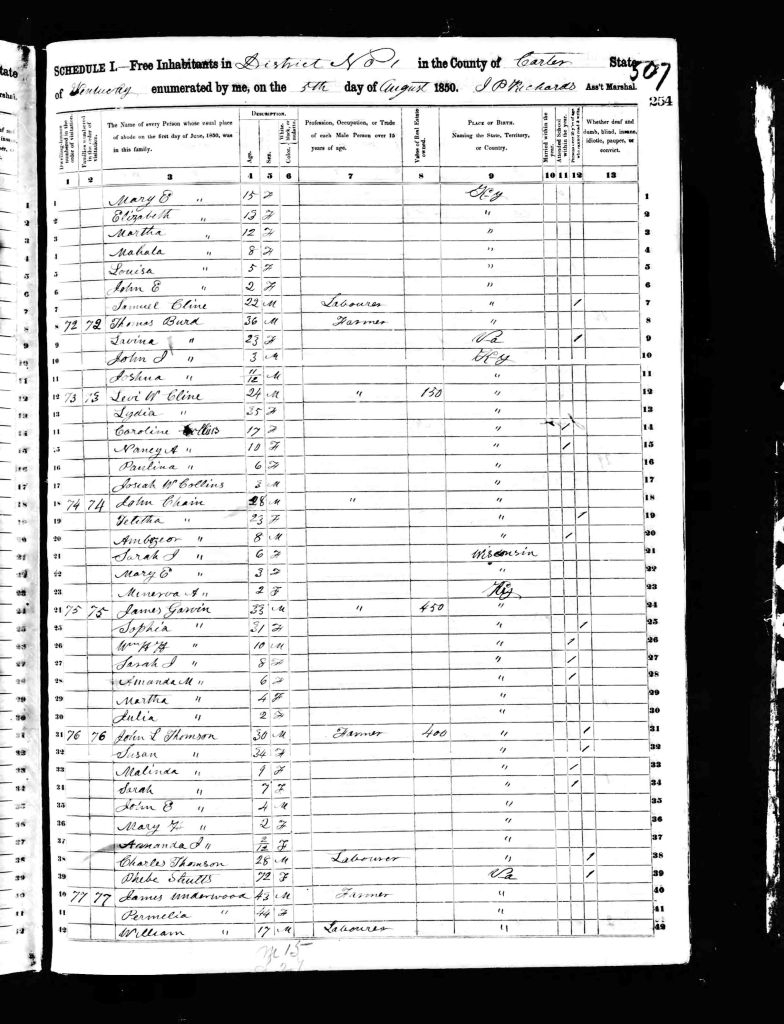 SCHEDULE I.—Free Inhabitants in District No 1 in the County of Carter State
507
of Kentucky enumerated by me, on the 5th day of August 1850. J P Richards Ass't Marshal.
254
Dwelling-houses numbered in the order of visitation.
Families numbered in the order of visitation.
The Name of every Person whose usual place of abode on the first day of June, 1850, was in this family.
DESCRIPTION.
Age.
Sex.
Color, White, black, or mulatto.
Profession, Occupation, or Trade of each Male Person over 15 years of age.
Value of Real Estate owned.
PLACE OF BIRTH. Naming the State, Territory, or Country.
Married within the year.
Attended School within the year.
Whether deaf and dumb, blind, insane, idiotic, pauper, or convict.
1 2 3 4 5 6 7 8 9 10 11 12 13
1 Mary E " 15 F Ky 1
2 Elizabeth " 13 F " 2
3 Martha " 12 F " 3
4 Mahala " 8 F " 4
5 Louisa " 5 F " 5
6 John E " 2 F " 6
7 Samuel Cline 22 M Labourer " / 7
8 72 72 Thomas Burd 36 M Farmer " 8
9 Lavina " 23 F Va / 9
10 John J " 3 M Ky 10
11 Joshua " 11/12 M " 11
12 73 73 Levi W Cline 24 M " 150 " 12
13 Lydia " 35 F " 13
14 Caroline Collins 17 F " / 14
15 Nancy A " 10 F " / 15
16 Paulina " 6 F " 16
17 Josiah W Collins 3 M " 17
18 74 74 John Chain 28 M " " 18
19 Telitha " 23 F " / 19
20 Ambozeor " 8 M " / 20
21 Sarah J " 6 F Wisconsin 21
22 Mary E " 3 F " 22
23 Minerva A " 2 F Ky 23
24 75 75 James Garvin 33 M " 450 " 24
25 Sophia " 31 F " / 25
26 Wm H H " 10 M " / 26
27 Sarah J " 8 F " / 27
28 Amanda M " 6 F " / 28
29 Martha " 4 F " 29
30 Julia " 2 F " 30
31 76 76 John L Thomson 30 M Farmer 400 " / 31
32 Susan " 34 F " / 32
33 Malinda " 9 F " / 33
34 Sarah " 7 F " / 34
35 John E " 4 M " 35
36 Mary F " 2 F " 36
37 Amanda J " 2/12 F " 37
38 Charles Thomson 28 M Labourer " / 38
39 Phebe Shutts 72 F Va / 39
40 77 77 James Underwood 43 M Farmer " 40
41 Permelia " 44 F " 41
42 William " 17 M Labourer " 42
M 15